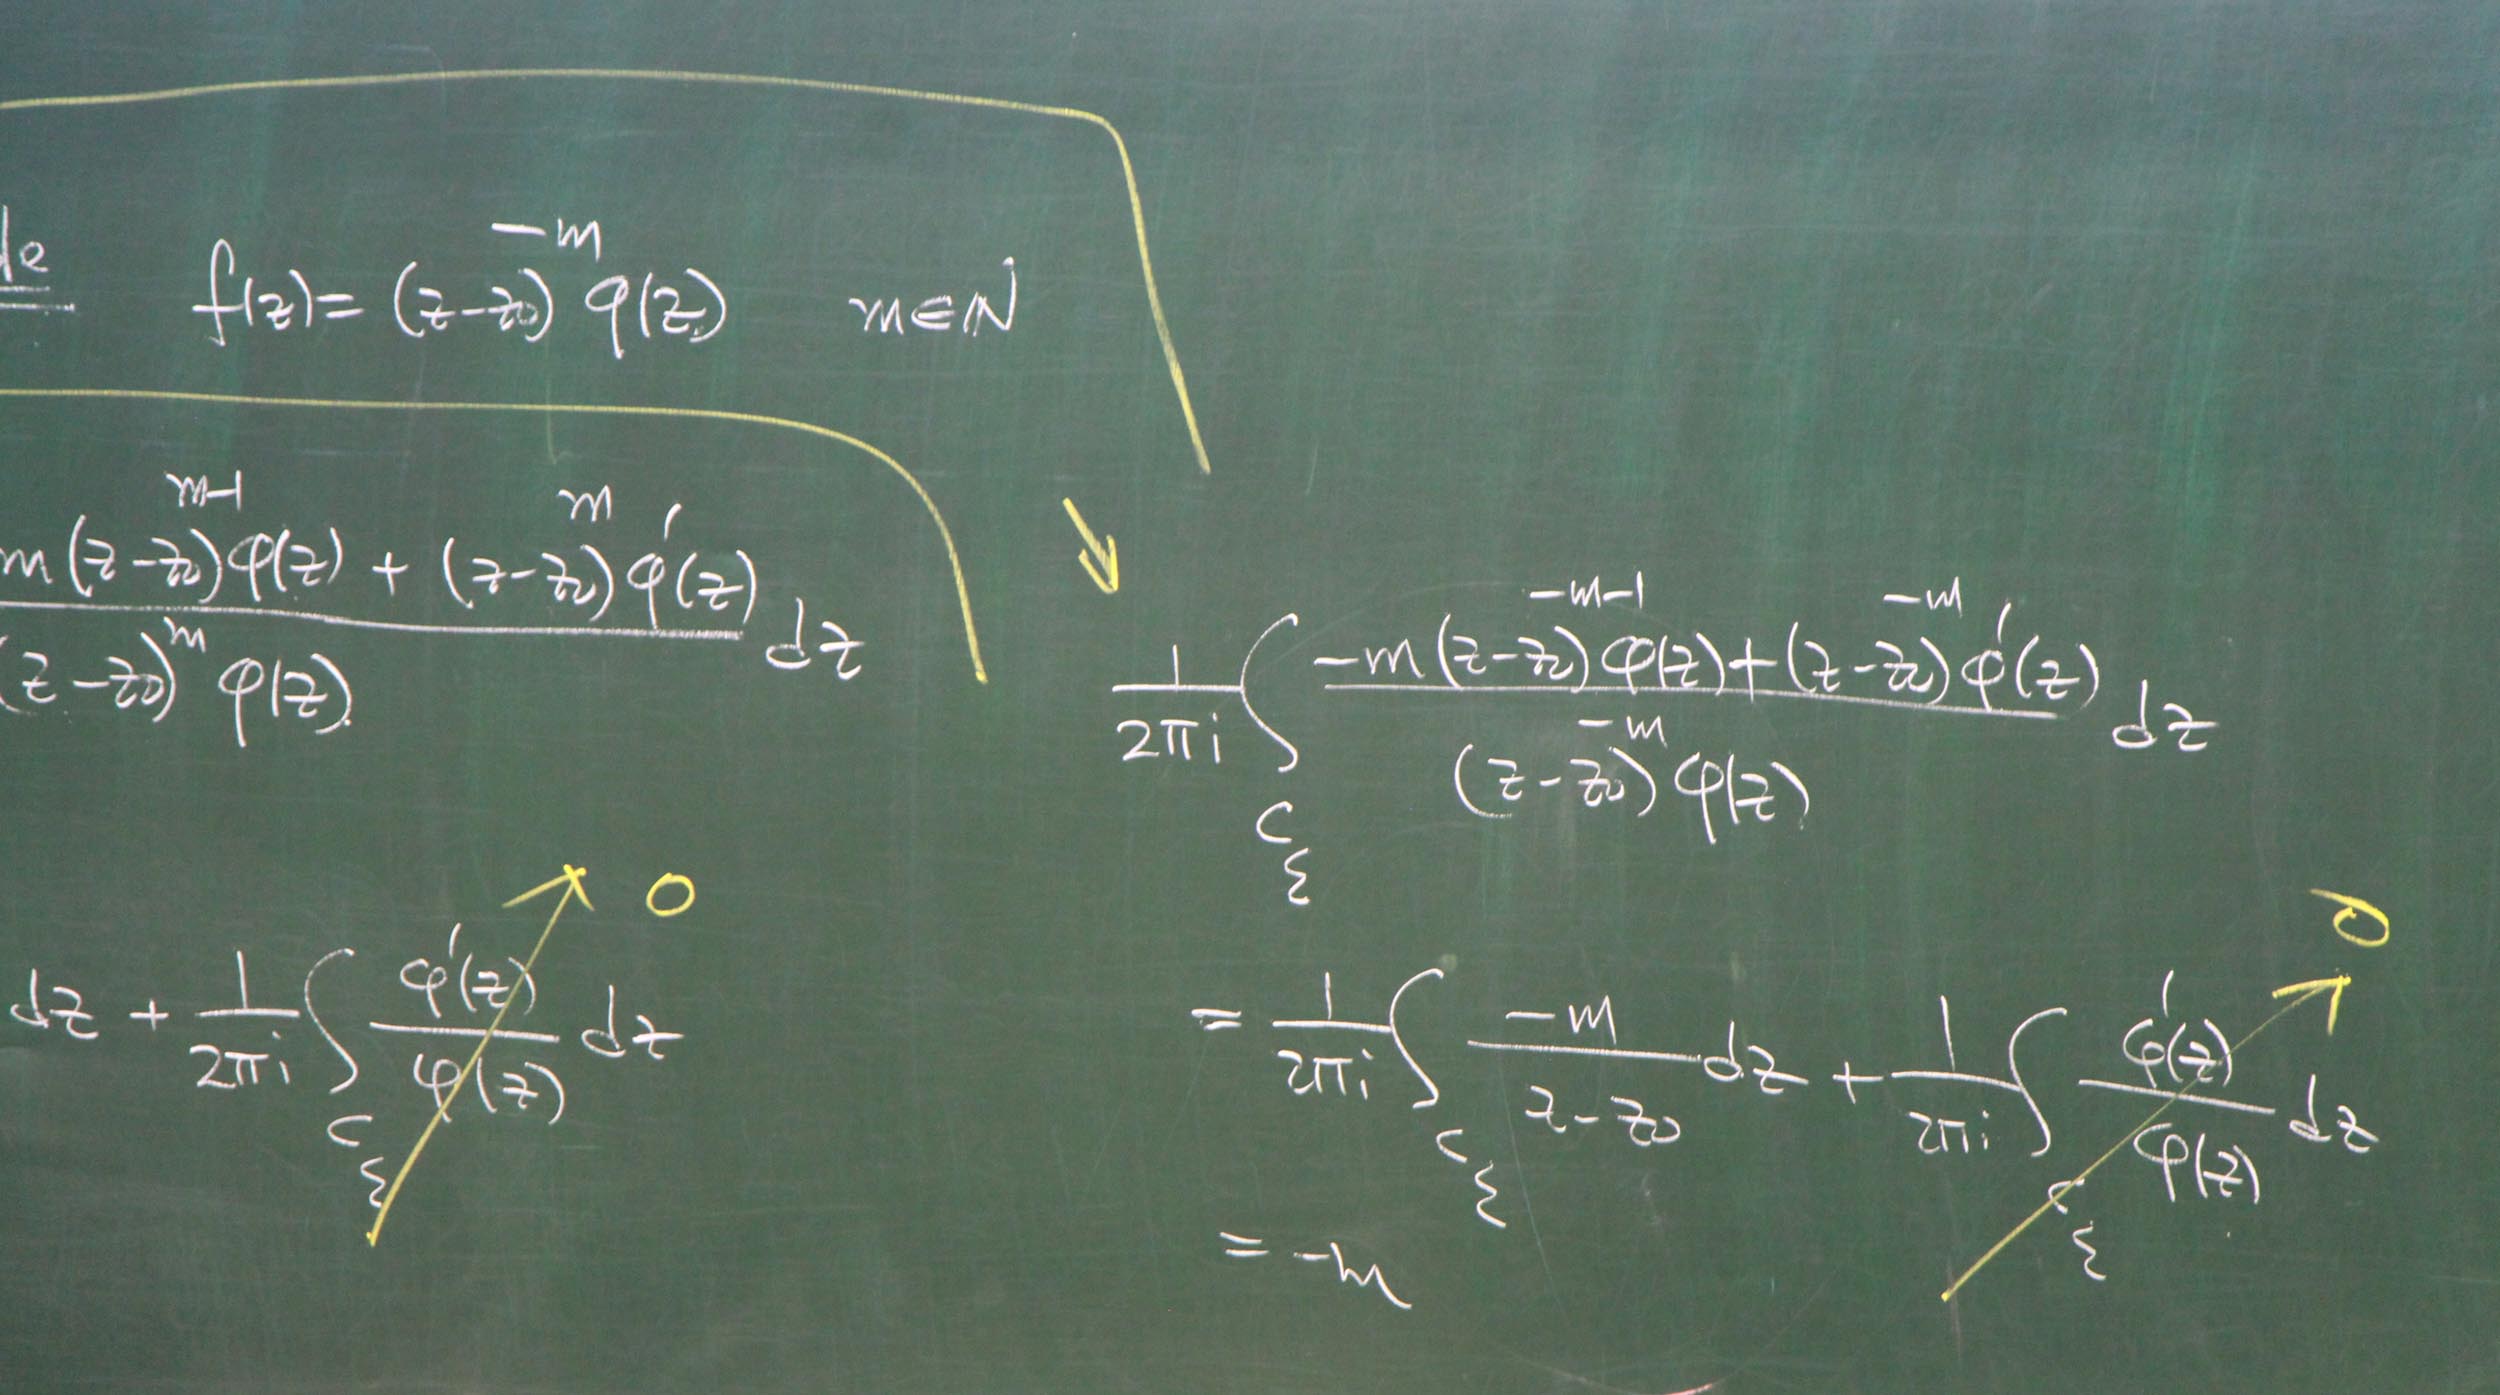 f(z) = (z-z₀)^{-m} φ(z)   m∈ℕ
m(z-z₀)^{m-1} φ(z) + (z-z₀)^{m} φ'(z)
(z-z₀)^{m} φ(z)
dz
dz + 1/(2πi) ∫_{C_ε} φ'(z)/φ(z) dz
0
1/(2πi) ∫_{C_ε} [-m(z-z₀)^{-m-1} φ(z) + (z-z₀)^{-m} φ'(z)] / [(z-z₀)^{-m} φ(z)] dz
= 1/(2πi) ∫_{C_ε} -m/(z-z₀) dz + 1/(2πi) ∫_{C_ε} φ'(z)/φ(z) dz
0
= -m